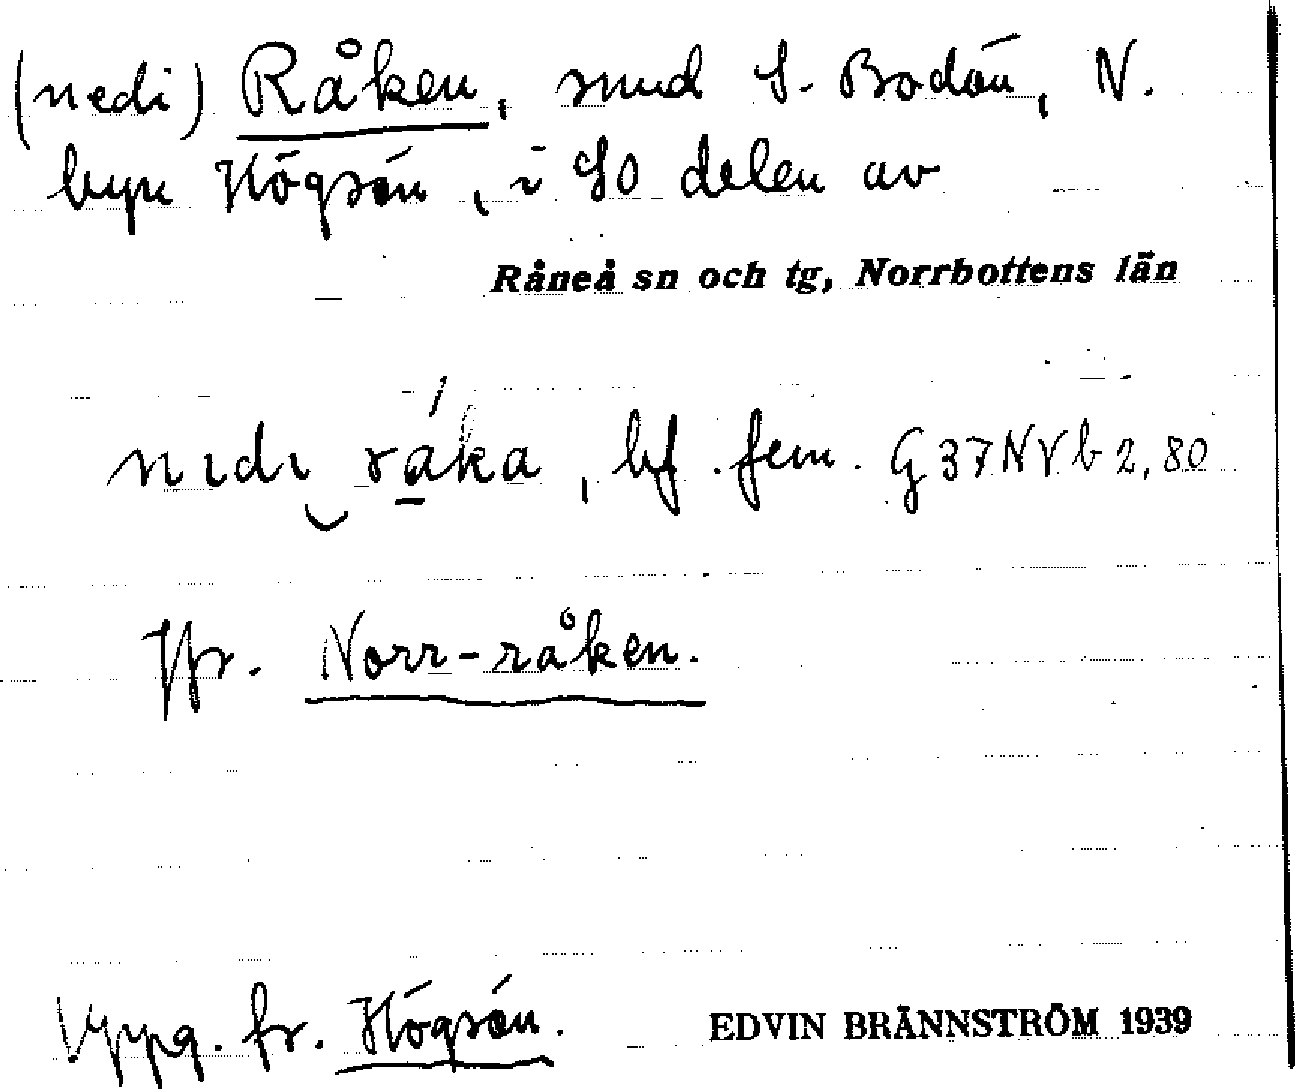 (nedi) Råken, sund S. Bodön, N.
byn Högsön, i SO delen av
Råneå sn och tg, Norrbottens län
nıdı ráka, bf. fem. G 37 NVb 2, 80
Jfr. Norr-råken.
Uppg. fr. Högsön.
EDVIN BRÄNNSTRÖM 1939